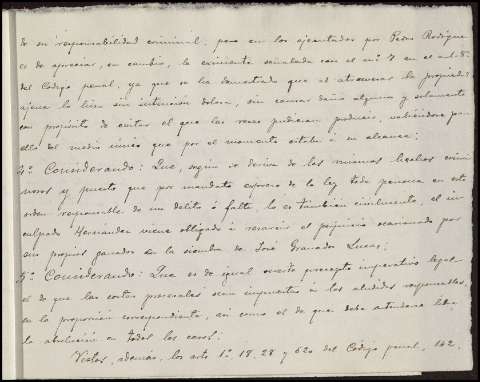 de su responsabilidad criminal; pero en los ejecutados por Pedro Rodrígue
es de apreciar, en cambio, la eximente señalada con el nº 7 en el art. 8º
del Código penal, ya que se ha demostrado que al atravesar la propiedad
ajena lo hizo sin intención dolosa, sin causar daño alguno y solamente
con propósito de evitar el que las reses pudieran producir, valiéndose para
ello del medio único que por el momento estaba a su alcance;
4º Considerando: Que, según se deriva de los mismos hechos crimi
nosos y puesto que por mandato expreso de la ley toda persona en este
orden responsable de un delito ó falta, lo es también civilmente, el in
culpado Hernández viene obligado á resarcir el perjuicio ocasionado por
sus propios ganados en la siembra de José Granados Lucas;
5º Considerando: Que es de igual suerte precepto imperativo legal
el de que las costas procesales sean impuestas á los aludidos responsables,
en la proporción correspondiente, así como el de que deba atenderse
la absolución en todos los casos;
Vistos, además, los arts 1º, 18, 28 y 620 del Código penal, 142,